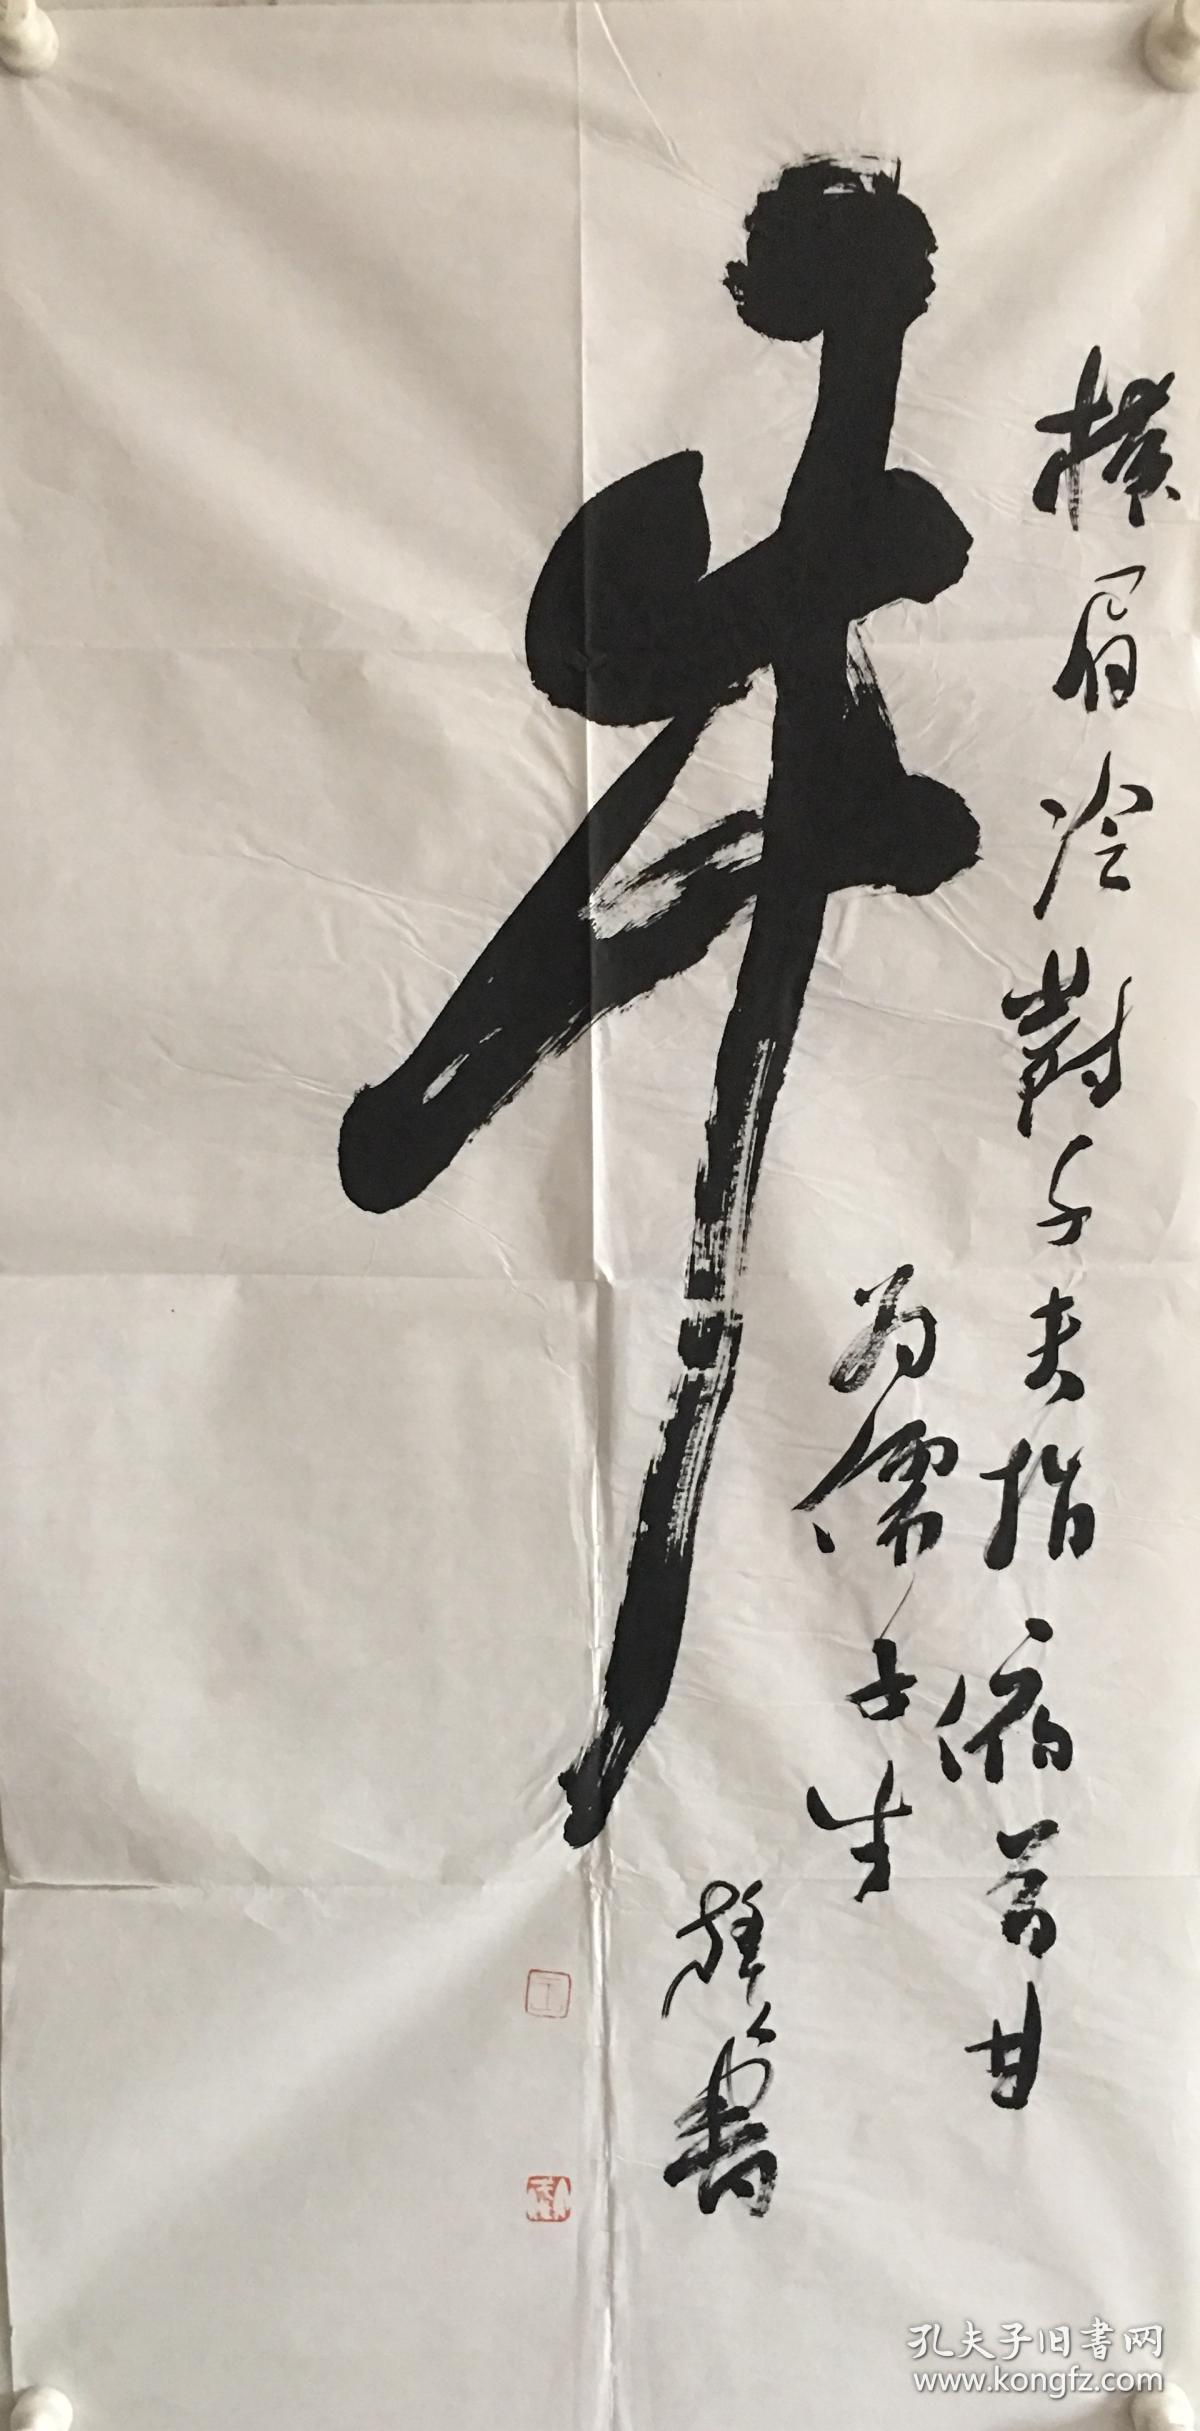 横眉冷對千夫指俯首甘
为儒子牛
牛
書
孔夫子旧書网
www.kongfz.com